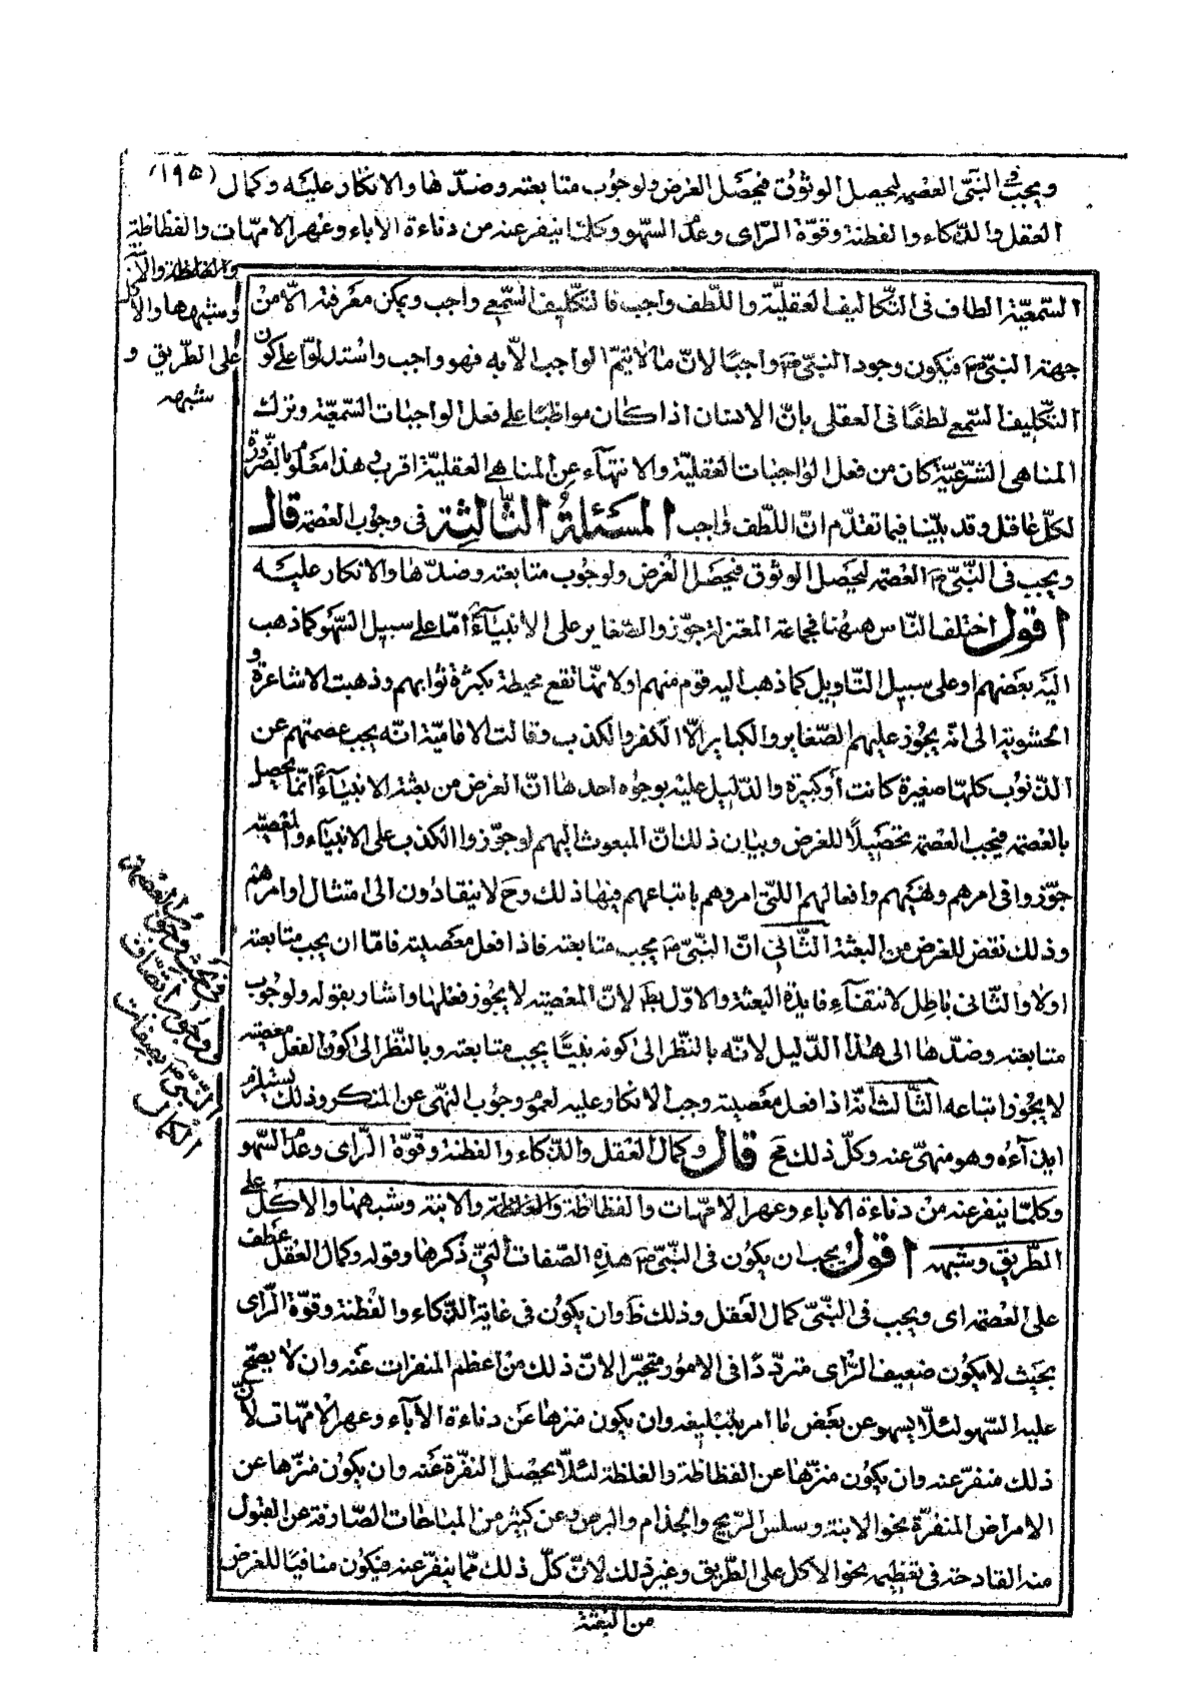 (١٩٥)
ويجب في النبي العصمة ليحصل الوثوق فيحصل الغرض ولوجوب متابعته وضدّها والانكار عليه وكمال
العقل والذكاء والفطنة وقوّة الرّأى وعدم السّهو وكلّما ينفر عنه من دناءة الاباء وعهر الامهات والفظاظة
والغلظة والابنة
وشبهها والاكل
على الطريق و
شبهه
السّمعيّة الطاف فى التكاليف العقليّة واللطف واجب فالتكليف السّمعى واجب ويمكن معرفته الّا من
جهة النبىّ ص فيكون وجود النبىّ ص واجبًا لانّ ما لا يتمّ الواجب الّا به فهو واجب واستدلوّا على كون
التكليف السّمعى لطفًا فى العقلى بانّ الانسان اذا كان مواظبًا على فعل الواجبات السّمعيّة وترك
المناهى الشرعيّة كان من فعل الواجبات العقليّة والانتهاء عن المناهى العقليّة اقرب وهذا معلوم بالضّرورة
لكلّ عاقل وقد بيّنا فيما تقدّم انّ اللّطف واجب المسئلة الثّالثة فى وجوب العصمة قال
ويجب فى النّبىّ ص العصمة ليحصل الوثوق فيحصل الغرض ولوجوب متابعته وضدّها والانكار عليه
اقول اختلف الناس هيهنا فجماعة المعتزلة جوّزوا الصّغاير على الانبياءَ امّا على سبيل السّهو كما ذهب
اليه بعضهم او على سبيل التّاويل كما ذهب اليه قوم منهم او لانّها تقع محبطة بكثرة ثوابهم وذهبت الاشاعرة و
الحشوية الى انّه يجوز عليهم الصّغاير والكباير الّا الكفر والكذب وقالت الاماميّة انّه يجب عصمتهم عن
الذّنوب كلها صغيرة كانت أو كبيرة والدّليل عليه بوجوه احدها انّ الغرض من بعثة الانبياءَ انّما يحصل
بالعصمة فيجب العصمة تحصيلًا للغرض وبيان ذلك انّ المبعوث اليهم لو جوّزوا الكذب على الانبياء والمعصية
جوّزوا فى امرهم ونهيهم وافعالهم اللتى امروهم باتباعهم فيها ذلك وح لا ينقادون الى امتثال اوامرهم
وذلك نقض للغرض من البعثة الثّانى انّ النبىّ ص يجب متابعته فاذا فعل معصية فامّا ان يجب متابعته
اولا والثّانى باطل لانتفاء فايدة البعثة والاوّل بط لانّ المعصية لا يجوز فعلها واشار بقوله ولوجوب
متابعته وضدّها الى هذا الدّليل لانّه بالنّظر الى كونه نبيًّا يجب متابعته وبالنّظر الى كون الفعل معصية
لا يجوز اتباعه الثّالث انّه اذا فعل معصية وجب الانكار عليه لعموم وجوب النّهى عن المنكر وذلك يستلزم
ايذآءه وهو منهىّ عنه وكلّ ذلك مح قال وكمال العقل والذّكاء والفطنة وقوّة الرّاى وعدم السّهو
وكلّما ينفر عنه من دناءة الاباء وعهر الامّهات والفظاظة والغلظة والابنة وشبهها والاكل على
الطّريق وشبهه اقول يجب ان يكون فى النّبىّ ص هذه الصّفات التى ذكرها وقوله وكمال العقل عطف
على العصمة اى ويجب فى النّبىّ كمال العقل وذلك ظ وان يكون فى غاية الذّكاء والفطنة وقوّة الرّاى
بحيث لا يكون ضعيف الرّاى متردّدًا فى الامور متحيّرا لانّ ذلك من اعظم المنفرات عنه وان لا يصحّ
عليه السّهو لئلّا يسهو عن بعض ما امر بتبليغه وان يكون منزها عن دناءة الآباء وعهر الامّهات لانّ
ذلك منفر عنه وان يكون منزّها عن الفظاظة والغلظة لئلّا يحصل النفرة عنه وان يكون منزّها عن
الامراض المنفرّة نحو الابنة وسلس الرّيح والجذام والبرص وعن كثير من المباحات الصّارفة عن القبول
منه القادحة فى تعظيمه نحو الاكل على الطّريق وغير ذلك لانّ كلّ ذلك ممّا ينفر عنه فيكون منافيًا للغرض
من البعثة
فى وجوب العصمة
و وجوب اتّصاف
النّبىّ ص بصفات
الكمال